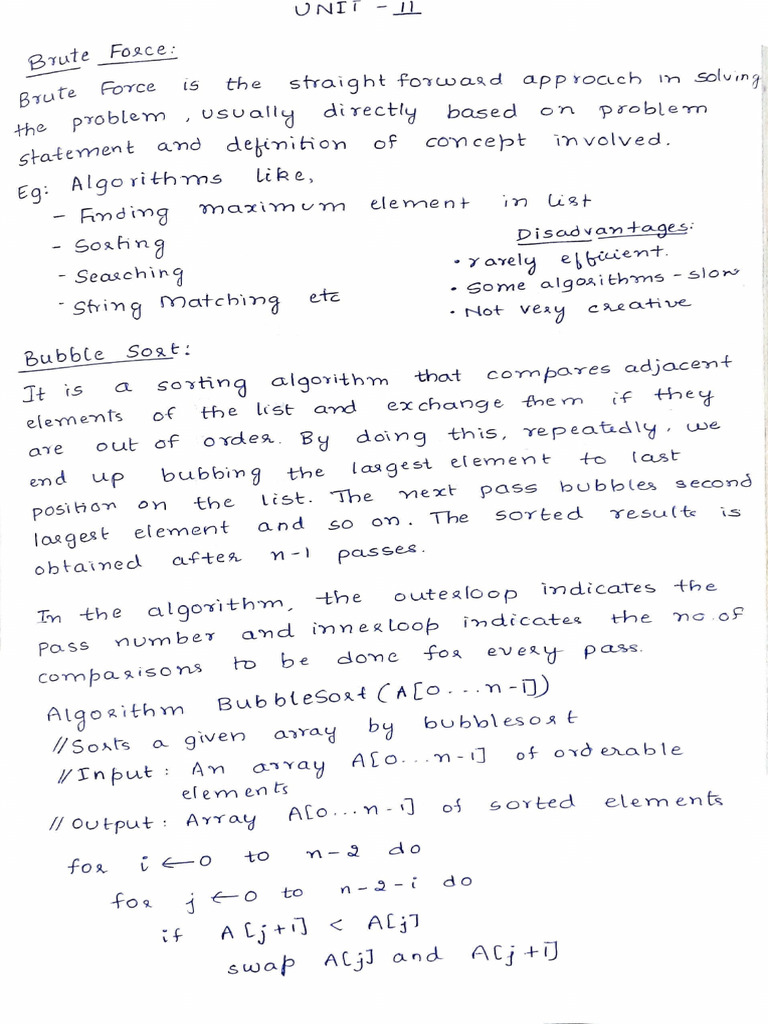 UNIT - II
Brute Force:
Brute Force is the straight forward approach in solving
the problem, usually directly based on problem
statement and definition of concept involved.
Eg: Algorithms like,
- Finding maximum element in list
- Sorting
- Searching
- String Matching etc
Disadvantages:
• rarely efficient.
• Some algorithms - slow
• Not very creative
Bubble Sort:
It is a sorting algorithm that compares adjacent
elements of the list and exchange them if they
are out of order. By doing this, repeatedly, we
end up bubbing the largest element to last
position on the list. The next pass bubbles second
largest element and so on. The sorted results is
obtained after n-1 passes.
In the algorithm, the outerloop indicates the
pass number and innerloop indicates the no.of
comparisons to be done for every pass.
Algorithm BubbleSort(A[0...n-1])
//Sorts a given array by bubblesort
//Input: An array A[0...n-1] of orderable
elements
//Output: Array A[0...n-1] of sorted elements
for i ← 0 to n-2 do
for j ← 0 to n-2-i do
if A[j+1] < A[j]
swap A[j] and A[j+1]